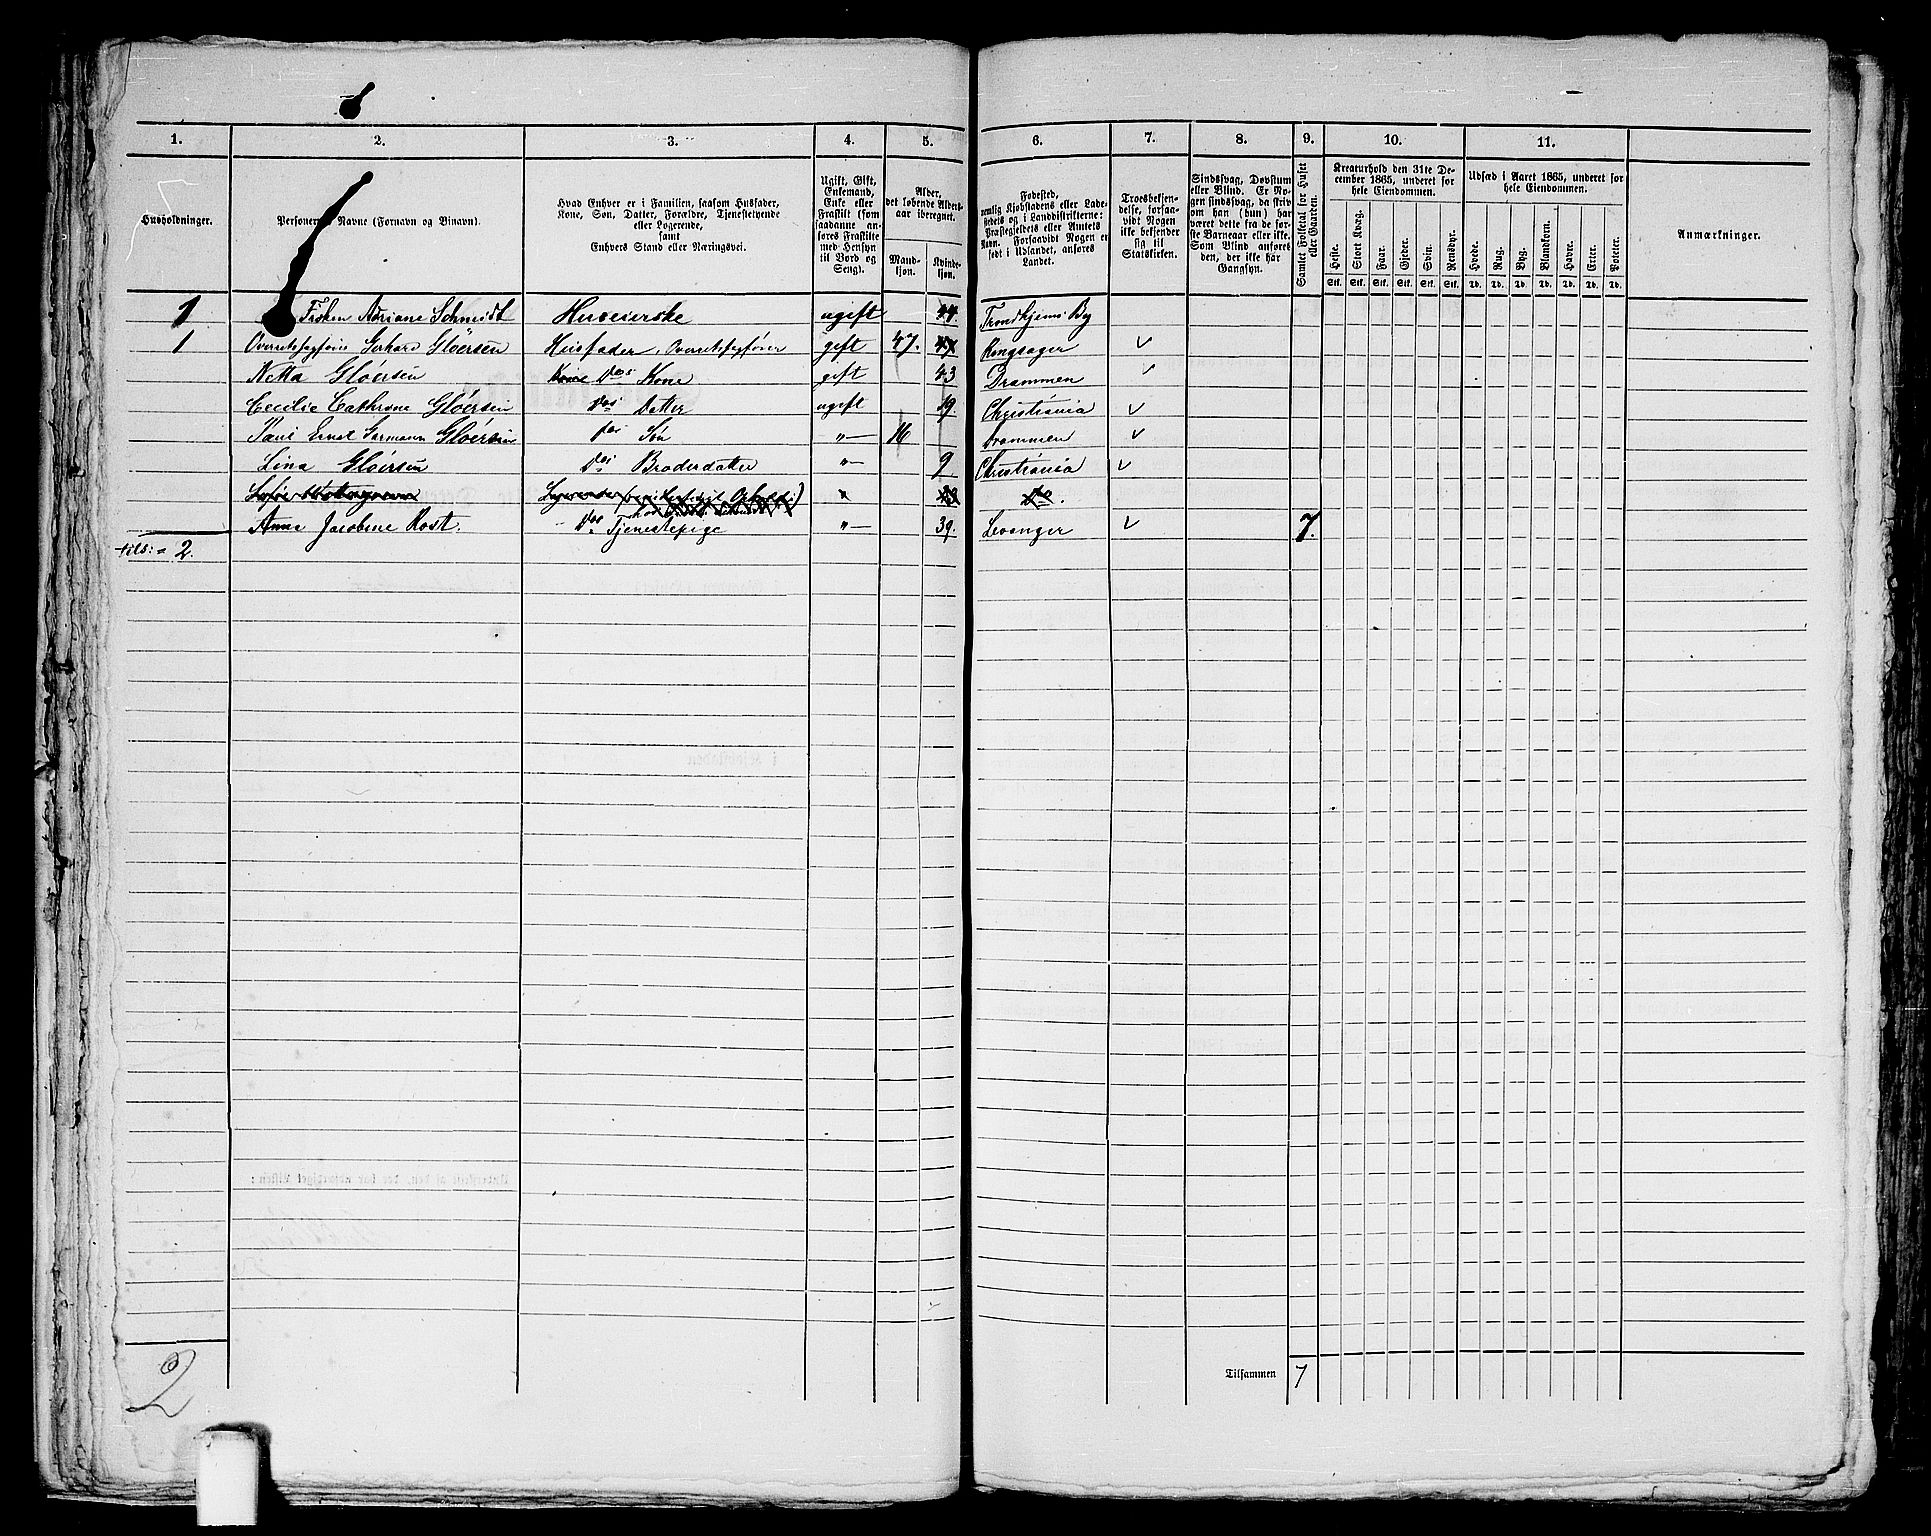 1. 2. 3. 4. 5. 6. 7. 8. 9. 10. 11.
Husholdninger.
Personernes Navne (Fornavn og Binavn).
Hvad Enhver er i Familien, saasom Husfader,
Kone, Søn, Datter, Forældre, Tjenestetyende
eller Logerende,
samt
Enhvers Stand eller Næringsvei.
Ugift, Gift,
Enkemand,
Enke eller
Fraskilt (som
saadanne an-
føres Fraskilte
med Hensyn
til Bord og
Seng).
Alder,
det løbende Alders-
aar iberegnet.
Mand-
kjøn.
Kvinde-
kjøn.
Fødested,
nemlig Kjøbstadens eller Lade-
stedets og i Landdistrikterne:
Præstegjeldets eller Amtets
Navn. Forsaavidt Nogen er
født i Udlandet, anføres
Landet.
Troesbekjen-
delse, forsaa-
vidt Nogen
ikke bekjender
sig til
Statskirken.
Sindssvag, Døvstum
eller Blind. Er No-
gen sindssvag, da skriv
om han (hun) har
været dette fra de før-
ste Barneaar eller ikke.
Som Blind anføres
den, der ikke har
Gangsyn.
Samlet Folketal for Huset
eller Gaarden.
Kreaturhold den 31te De-
cember 1865, underet for
hele Eiendommen.
Heste. Stort Kvæg. Faar. Gjeder. Svin. Rensdyr.
Stk. Stk. Stk. Stk. Stk. Stk.
Udsæd i Aaret 1865, underet for
hele Eiendommen.
Hvede. Rug. Byg. Blandkorn. Havre. Erter. Poteter.
Td. Td. Td. Td. Td. Td. Td.
Anmærkninger.
1 Adriane Schmidt Huseierske ugift 44. Trondhjems By
1 Gerhard Gløersen Husfader, Overretssagfører gift 47. Ringsager
Netta Gløersen Kone Dos Kone gift 43 Drammen
Cecilie Cathrine Gløersen Dos Datter ugift 19. Christiania
Paul Ernst Garmann Gløersen Dos Søn "— 16 Drammen
Lina Gløersen Dos Broderdatter "— 9 Christiania
Do.
Anna Jacobine Rost. Dos Tjenestepige "— 39. Levanger 7.
tils: = 2.
Tilsammen 7
2